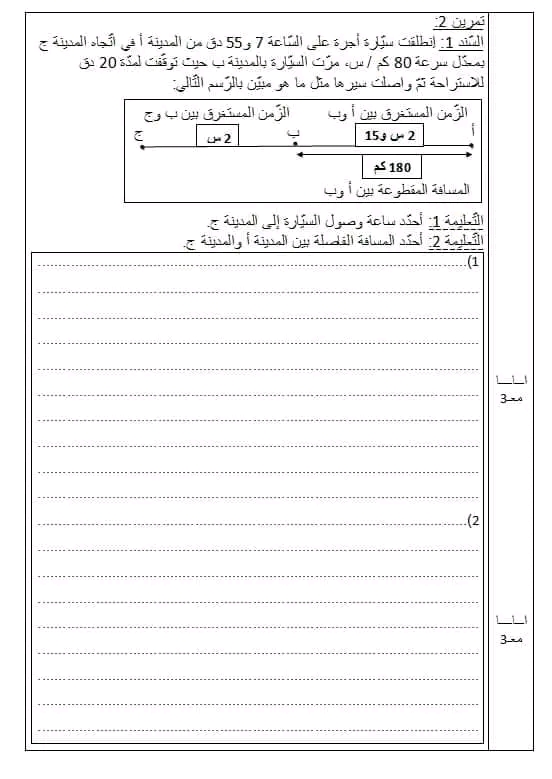 تمرين 2:
السّند 1: إنطلقت سيّارة أجرة على السّاعة 7 و55 دق من المدينة أ في اتّجاه المدينة ج
بمعدّل سرعة 80 كم / س، مرّت السيّارة بالمدينة ب حيث توقّفت لمدّة 20 دق
للاستراحة ثمّ واصلت سيرها مثل ما هو مبيّن بالرّسم التّالي:
الزّمن المستغرق بين أ وب
الزّمن المستغرق بين ب وج
أ
2 س و15
ب
2 س
ج
180 كم
المسافة المقطوعة بين أ وب
التّعليمة 1: أحدّد ساعة وصول السيّارة إلى المدينة ج.
التّعليمة 2: أحدّد المسافة الفاصلة بين المدينة أ والمدينة ج.
1)
معـ3
2)
معـ3